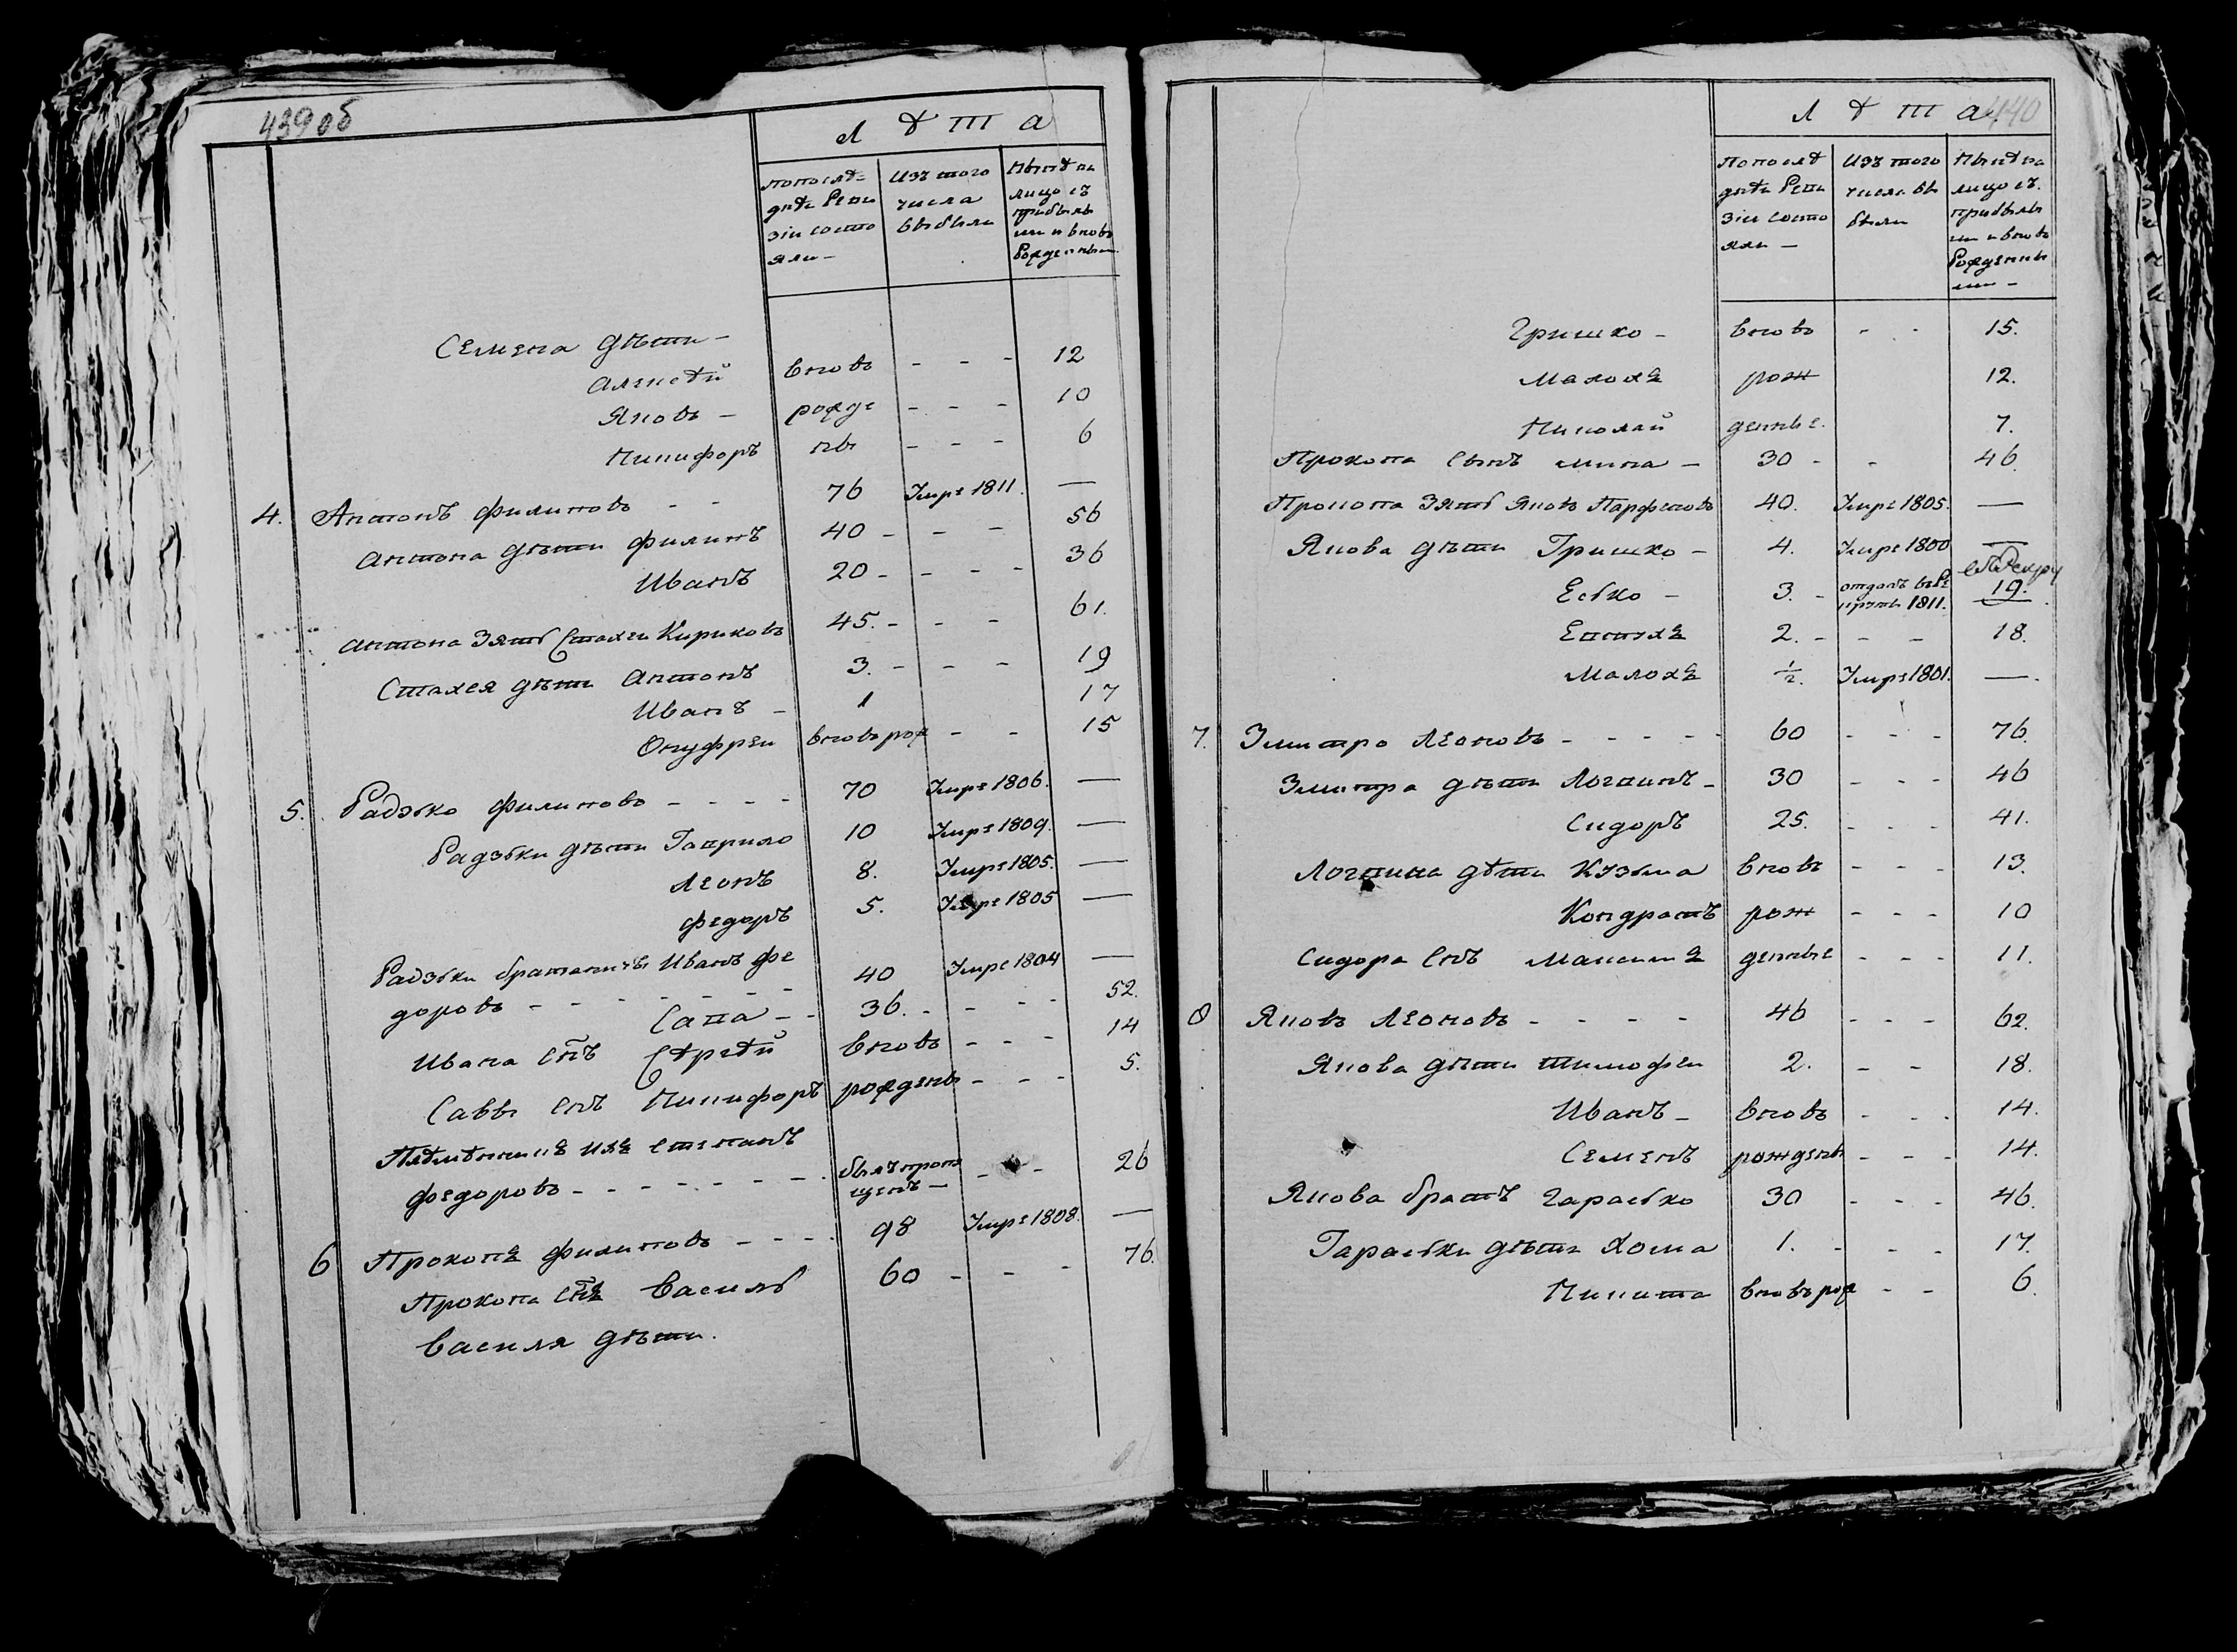 439об
Лѣта
По послѣдней Ревизіи состояли –
Изъ того числа выбыли
Нынѣ на лицо съ прибылыми и вновь рожденными
Семена дѣти –
Алексѣй вновь - - - 12
Яковъ – рожде - - - 10
Никифоръ ны - - - 6
4. Антонъ Филиповъ - - 76 Умре 1811. —
Антона дѣти Филипъ 40 - - - 56
Иванъ 20 - - - - 36
Антона Зять Стахей Кириковъ 45. - - - 61.
Стахея дѣти Антонъ 3. - - - 19
Иванъ – 1 17
Онуфрей вновь рож - - 15
5. Радзько Филиповъ - - - - 70 Умре 1806. —
Радзьки дѣти Гаврило 10 Умре 1809. —
Леонъ 8. Умре 1805. —
Федоръ 5. Умре 1805 —
Радзьки братаничъ Иванъ Фе
доровъ - - - - - - - 40 Умре 1804 —
Сава - - 36. - - - - 52.
Ивана Снъ Сергѣй вновь - - - 14
Саввы Снъ Никифоръ рожденъ - - - 5.
Плѣмѣнникъ ихъ Степанъ
Федоровъ - - - - - - - былъ пропущенъ – - - 26
6 Прокопъ Филиповъ - - - - 98 Умре 1808. —
Прокопа Снъ Василь 60 - - - 76.
Василя дѣти.
440
Лѣта
По послѣдней Ревизіи состояли –
Изъ того числа выбыли
Нынѣ на лицо съ прибылыми и вновь рожденными –
Гришко – вновь - - 15.
Малохъ рож 12.
Николай денные. 7.
Прокопа Сынъ Мина – 30 - - 46.
Прокопа Зять Яковъ Парфеновъ 40. Умре 1805. —
Якова дѣти Гришко – 4. Умре 1800 —
Еско – 3. - отданъ въ Рекруты 1811. 19.
Евтухъ 2. - - - 18.
Малохъ ½. Умре 1801. —
7. Змитро Леоновъ - - - - - 60 - - - 76.
Змитра дѣти Логвинъ – 30 - - - 46
Сидоръ 25. - - - 41.
Логвина дѣти Кузьма вновь - - - 13.
Кондратъ рож - - - 10
Сидора Снъ Максимъ денные - - - 11.
8 Яковъ Леоновъ - - - - 46 - - - 62.
Якова дѣти Тимофей 2. - - 18.
Иванъ – вновь - - - 14.
Семенъ рождены - - - 14.
Якова братъ Гарасько 30 - - - 46.
Гараськи дѣти Хома 1. - - - 17.
Никита вновь рож - - 6.